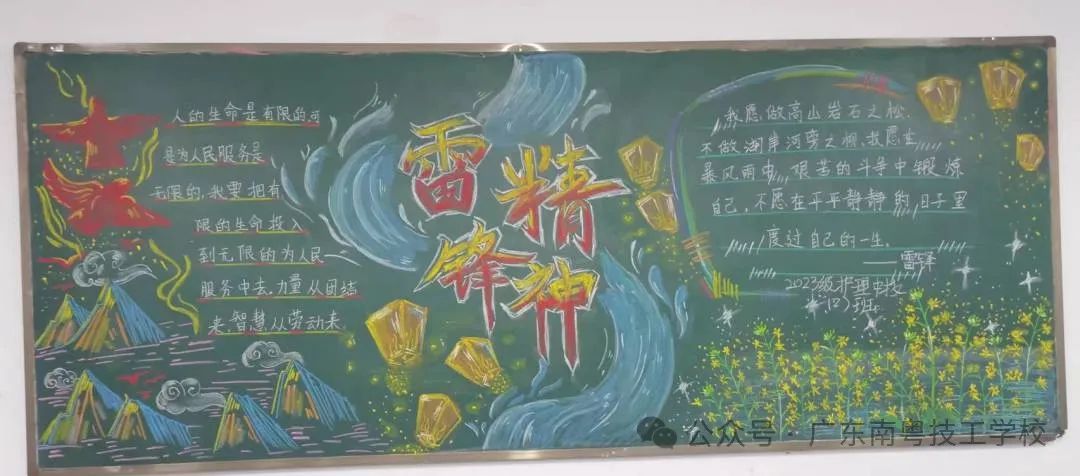 人的生命是有限的可
是为人民服务是
无限的,我要把有
限的生命投入
到无限的为人民
服务中去,力量从团结
来,智慧从劳动来
雷锋
精神
我愿做高山岩石之松
不做湖岸河旁之柳,我愿在
暴风雨中 艰苦的斗争中锻炼
自己,不愿在平平静静的日子里
度过自己的一生.
——雷锋
2023级护理中技
(2)班
公众号·广东南粤技工学校